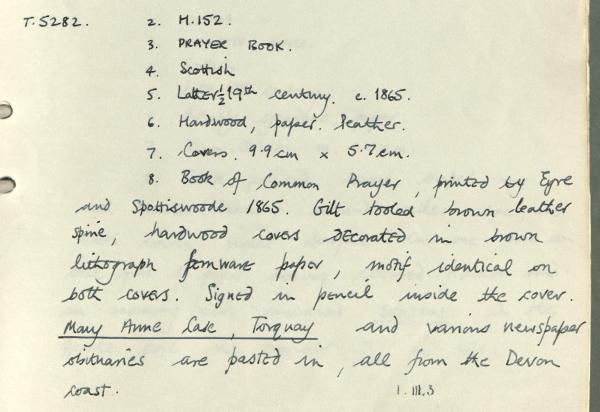 T.5282. 2. H.152.
3. PRAYER BOOK.
4. Scottish
5. Latter ½ 19th century. c. 1865.
6. Hardwood, paper. leather.
7. Covers. 9.9cm x 5.7cm.
8. Book of Common Prayer, printed by Eyre
and Spottiswoode 1865. Gilt tooled brown leather
spine, hardwood covers decorated in brown
lithograph fernware paper, motif identical on
both covers. Signed in pencil inside the cover.
Mary Anne Case, Torquay and various newspaper
obituaries are pasted in, all from the Devon
coast. 1.111.3